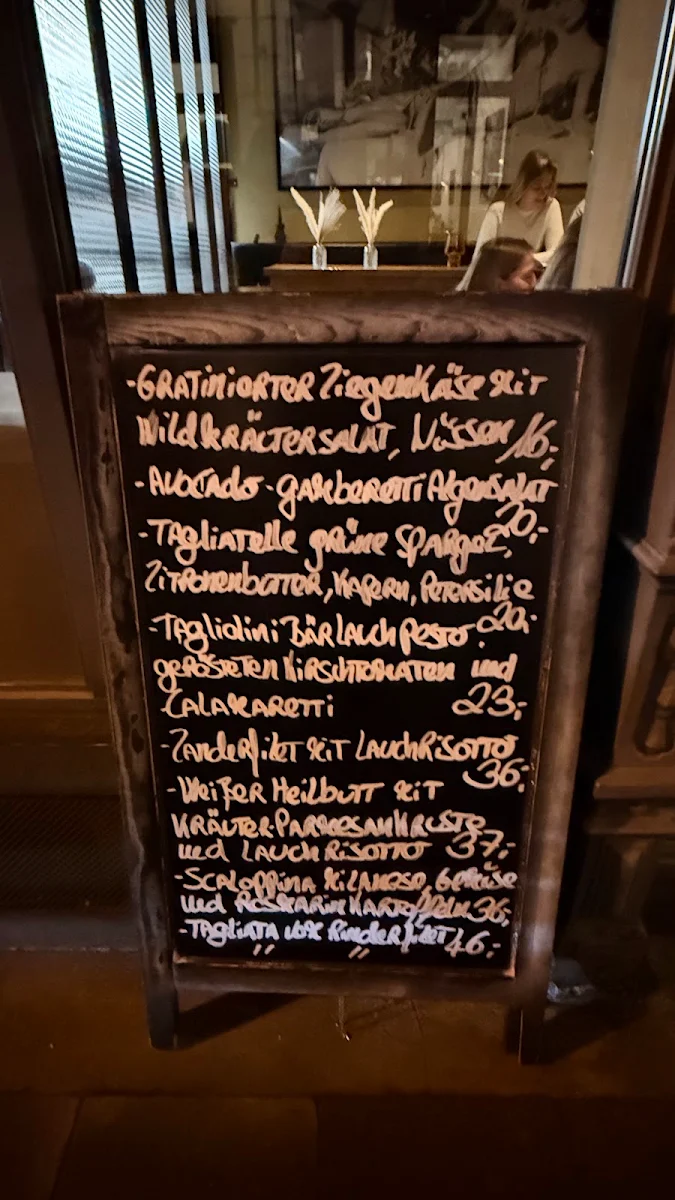 -Gratinierter Ziegenkäse mit
Wildkräutersalat, Nüssen 16,-
-Avocado-Gamberetti Algensalat
20,-
-Tagliatelle grüne Spargel,
Zitronenbutter, Kapern, Petersilie
20,-
-Tagliolini Bärlauchpesto.
gerösteten Kirschtomaten und
Calamaretti 23,-
-Zanderfilet mit Lauchrisotto
36,-
-Weißer Heilbutt mit
Kräuter-Parmesankruste
und Lauchrisotto 37,-
-Scaloppina Milanese, Gemüse
und Rosmarinkartoffeln 36,-
-Tagliata vom Rinderfilet 46,-
" "